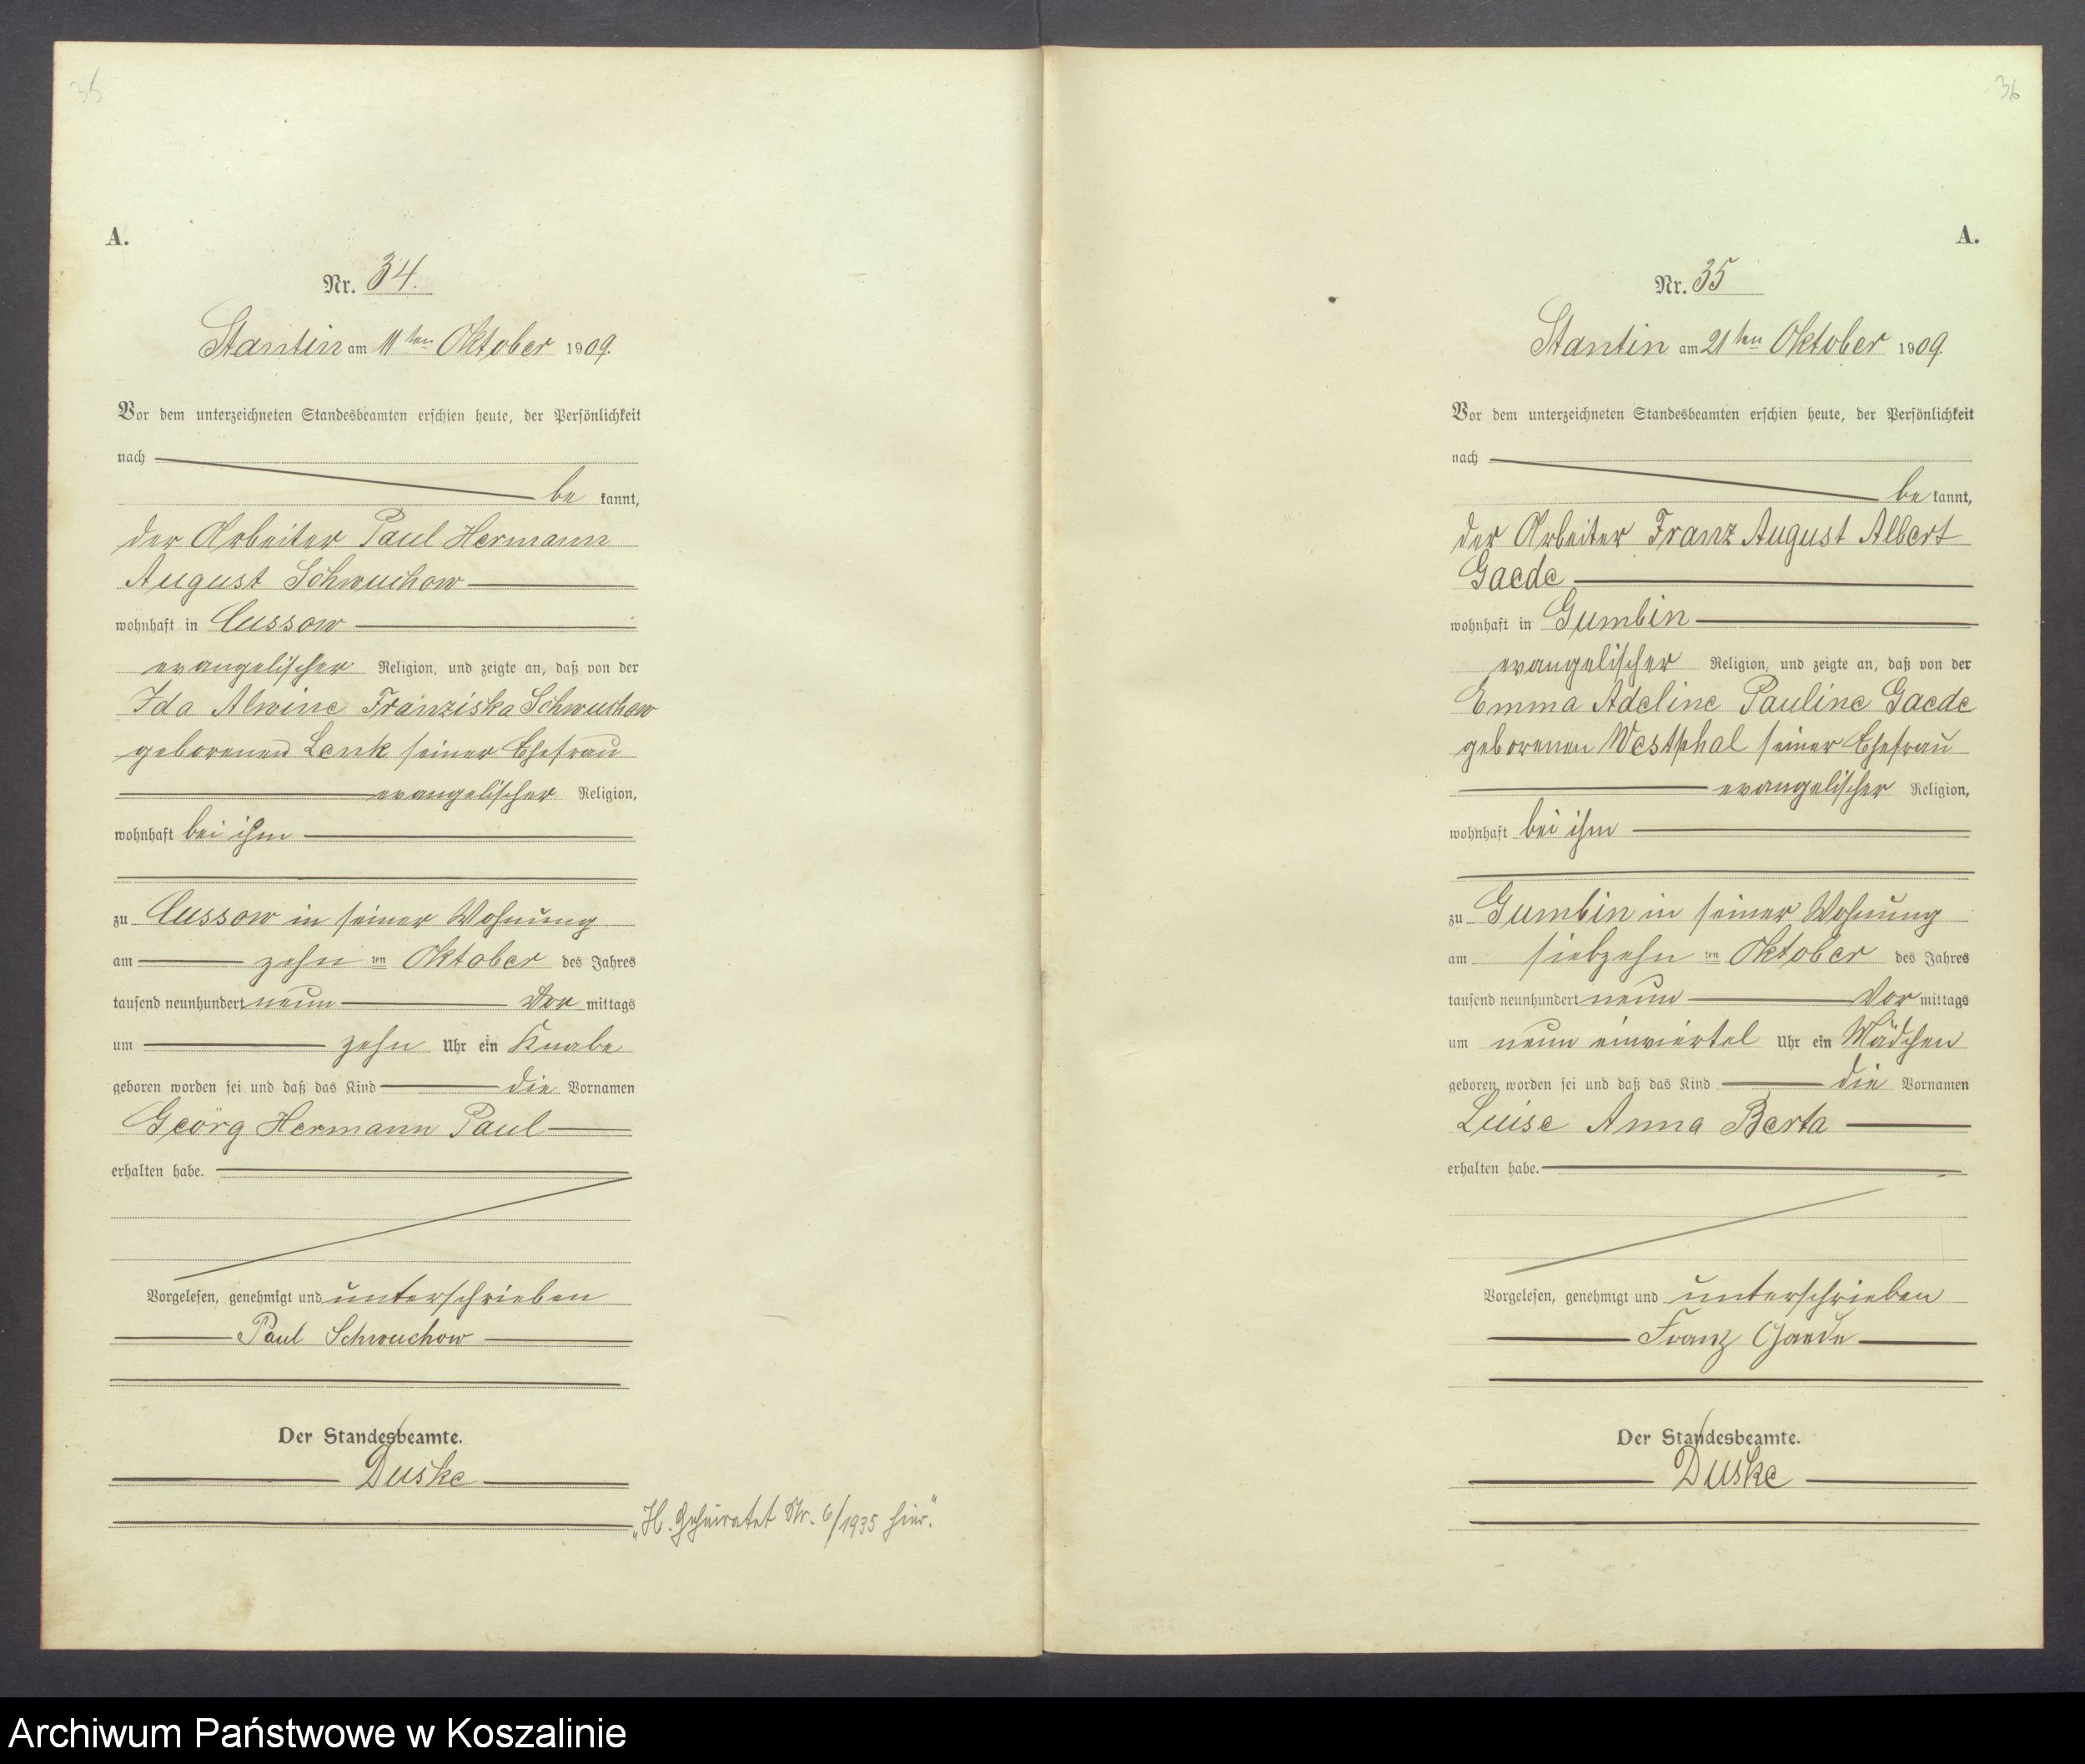 35
A.
Nr. 34.
Stantin am 11ten Oktober 1909.
Vor dem unterzeichneten Standesbeamten erschien heute, der Persönlichkeit
nach
be kannt,
der Arbeiter Paul Hermann
August Schwuchow
wohnhaft in Cussow
evangelischer Religion, und zeigte an, daß von der
Ida Alwine Franziska Schwuchow
geborenen Lenk seiner Ehefrau
evangelischer Religion,
wohnhaft bei ihm
zu Cussow in seiner Wohnung
am zehn ten Oktober des Jahres
tausend neunhundert neun Vor mittags
um zehn Uhr ein Knabe
geboren worden sei und daß das Kind die Vornamen
Georg Hermann Paul
erhalten habe.
Vorgelesen, genehmigt und unterschrieben
Paul Schwuchow
Der Standesbeamte.
Duske
„H. Geheiratet Nr. 6/1935 hier.“
36
A.
Nr. 35
Stantin am 21ten Oktober 1909.
Vor dem unterzeichneten Standesbeamten erschien heute, der Persönlichkeit
nach
be kannt,
der Arbeiter Franz August Albert
Gaede
wohnhaft in Gumbin
evangelischer Religion, und zeigte an, daß von der
Emma Adeline Pauline Gaede
geborenen Westphal seiner Ehefrau
evangelischer Religion,
wohnhaft bei ihm
zu Gumbin in seiner Wohnung
am siebzehn ten Oktober des Jahres
tausend neunhundert neun Vor mittags
um neun einviertel Uhr ein Mädchen
geboren worden sei und daß das Kind die Vornamen
Luise Anna Berta
erhalten habe.
Vorgelesen, genehmigt und unterschrieben
Franz Gaede
Der Standesbeamte.
Duske
Archiwum Państwowe w Koszalinie